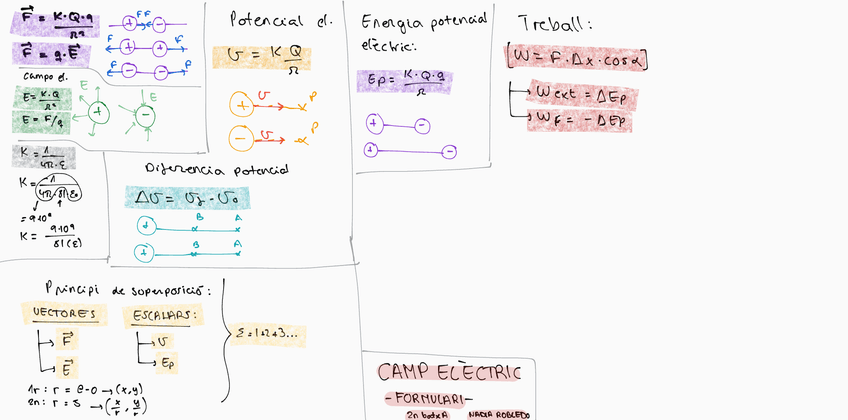 F = K·Q·q / r²
F F
F = q·E
F F
F F
Campo el.
E = K·Q / r²
E = F/q
E
E
K = 1 / 4π·ε
K = 1 / 4π·
= 9·10⁹
K = 9·10⁹
Potencial el.
V = K Q / r
V P
V P
Diferencia potencial
ΔV = - V₀
B A
B A
Energia potencial
elèctric:
Ep = K·Q·q / r
Treball:
W = F·Δx·cosα
Wext = ΔEp
WF = -ΔEp
Principi de superposició:
VECTORES
F
E
ESCALARS:
V
Ep
Σ = 1+2+3...
1r: r = → (x,y)
2n: r = → (x/r, y/r)
CAMP ELÈCTRIC
- FORMULARI -
2n batxA NADIA ROBLEDO